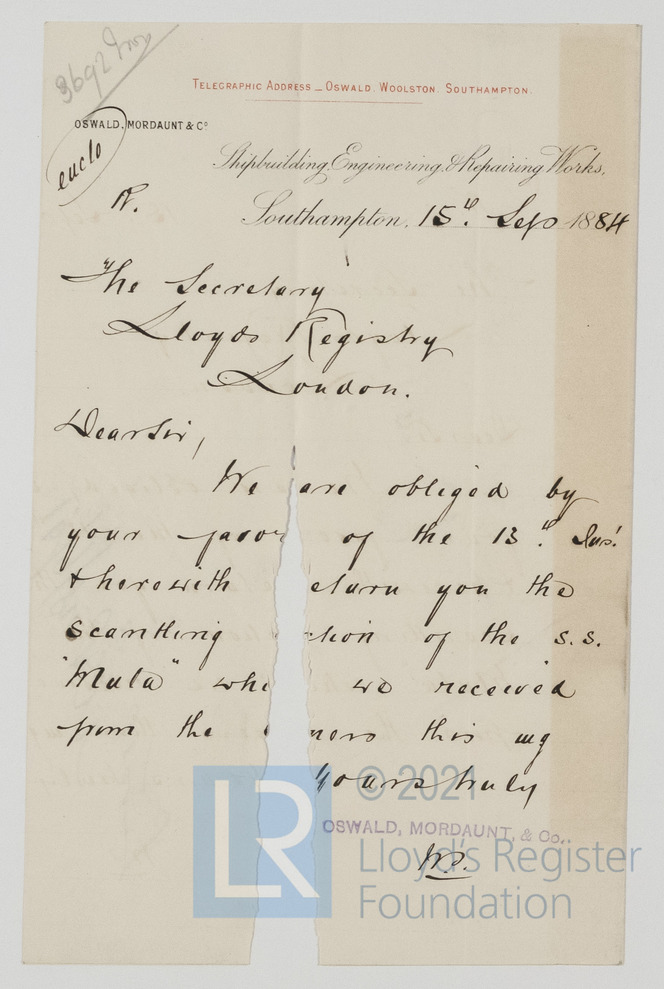 3692 Iron
TELEGRAPHIC ADDRESS _ OSWALD. WOOLSTON. SOUTHAMPTON.
OSWALD, MORDAUNT & Co
enclo
Shipbuilding, Engineering, & Repairing Works,
R.
Southampton, 15th Sep 1884
The Secretary
Lloyds Registry
London.
Dear Sir,
We are obliged by
your favor of the 13th Inst
& herewith eturn you the
scantling ction of the s.s.
"Muta" whi we received
from the ners this mg
Yours truly
OSWALD, MORDAUNT, & Co.,
© 2021
LR
Lloyd's Register
Foundation